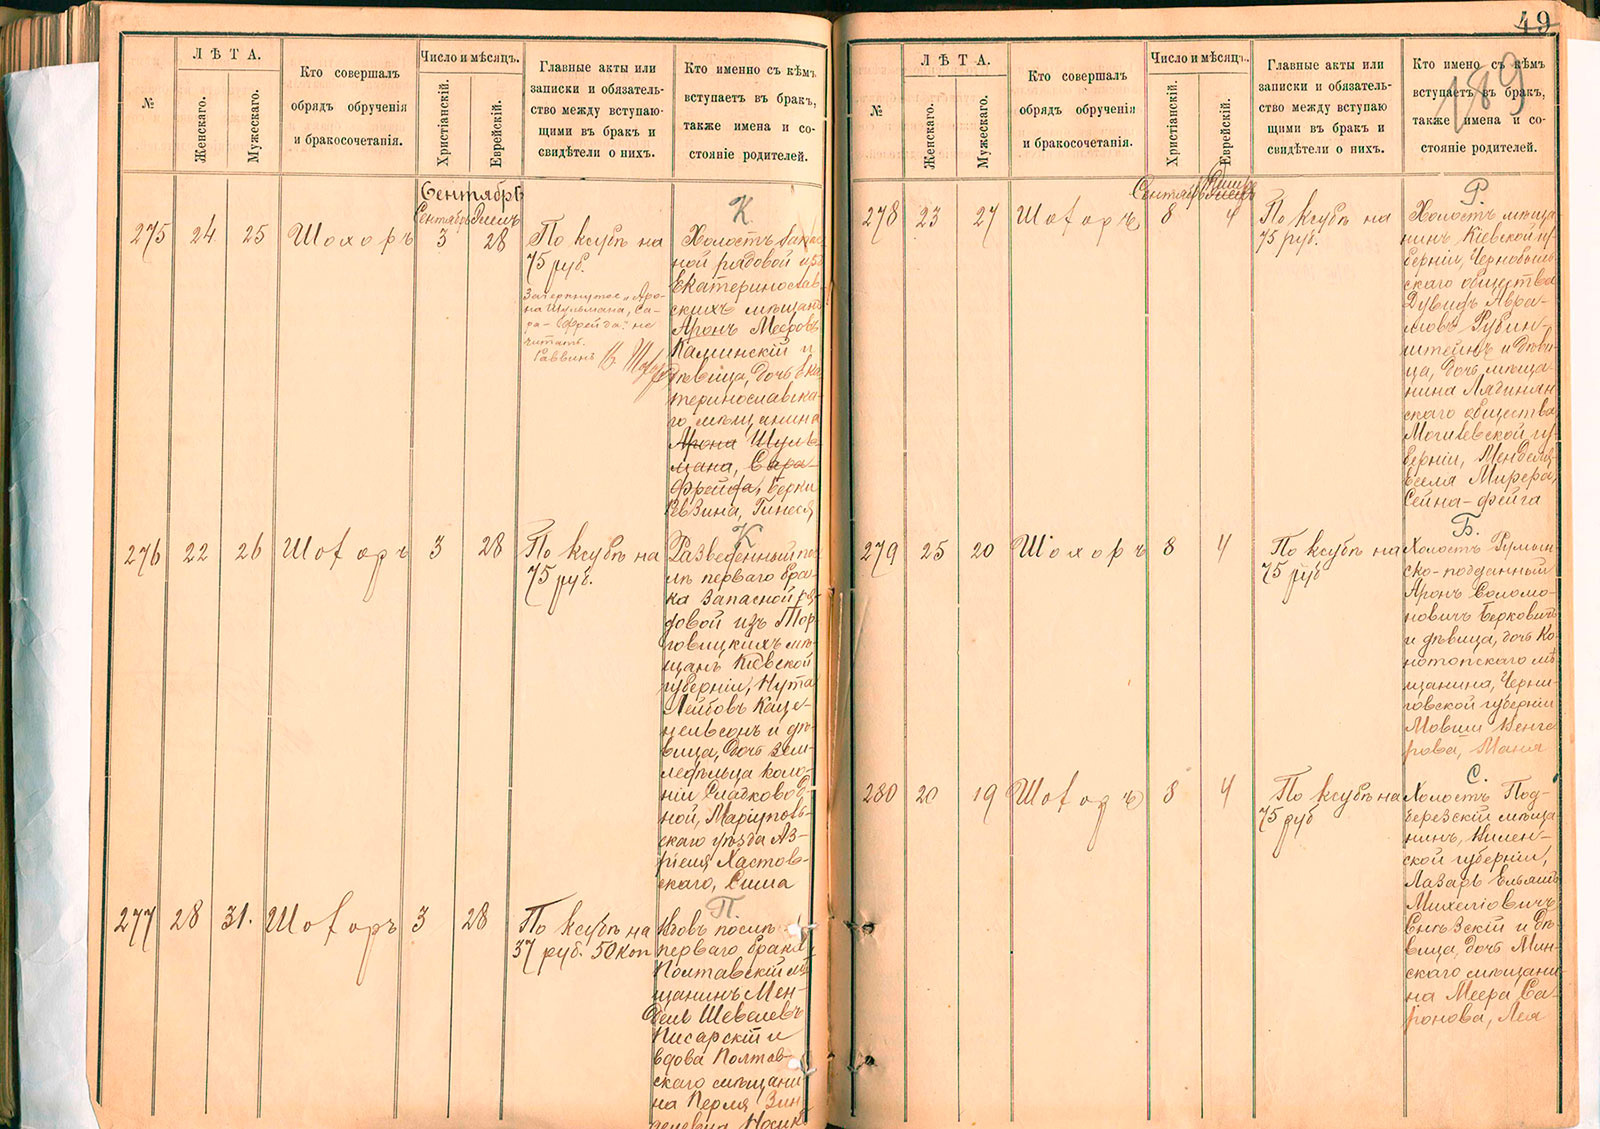 №
ЛѢТА.
Женскаго.
Мужескаго.
Кто совершалъ
обрядъ обрученія
и бракосочетанія.
Число и мѣсяцъ.
Христіанскій.
Еврейскій.
Главные акты или
записки и обязатель-
ство между вступаю-
щими въ бракъ и
свидѣтели о нихъ.
Кто именно съ кѣмъ
вступаетъ въ бракъ,
также имена и со-
стояніе родителей.
Сентябрь
Сентябрь Элелъ
275 24 25 Шохоръ 3 28
По ксубѣ на
75 руб.
Зачеркнутое „Аро-
на Шульмана, Са-
ра-Фрейда" не
читать.
Раввинъ
К.
Холостъ запас
ной рядовой изъ
Екатеринослав
скихъ мѣщанъ
Аронъ Мееровъ
Каминскій и
дѣвица, дочь Ека
теринославска-
го мѣщанина
Арона Шуль-
мана, Сара-
Фрейда, Берки
Евзина, Гинеся
276 22 26 Шохоръ 3 28
По ксубѣ на
75 руб.
К
Разведенный пос
лѣ перваго бра-
ка запасной ря-
довой изъ Тор-
говицкихъ мѣ-
щанъ Кіевской
губерніи, Нута
Лейбовъ Каце-
нельсонъ и дѣ-
вица, дочь зем-
ледѣльца коло-
ніи Сладково-
ной, Маріуполь-
скаго уѣзда Аз-
ріеля Хастов-
скаго, Сима
277 28 31. Шохоръ 3 28
По ксубѣ на
37 руб. 50 коп
П.
Вдовъ послѣ
перваго брака
Полтавскій мѣ
щанинъ Мен-
дель Шевелевъ
Писарскій и
вдова Полтав-
скаго мѣщани
на Перля Зин
49
189
№
ЛѢТА.
Женскаго.
Мужескаго.
Кто совершалъ
обрядъ обрученія
и бракосочетанія.
Число и мѣсяцъ.
Христіанскій.
Еврейскій.
Главные акты или
записки и обязатель-
ство между вступаю
щими въ бракъ и
свидѣтели о нихъ.
Кто имено съ кѣмъ
вступаетъ въ бракъ,
также имена и со-
стояніе родителей.
Сентябрь Тишри
278 23 27 Шохоръ 8 4
По ксубѣ на
75 руб.
Р.
Холостъ мѣща-
нинъ Кіевской гу-
берніи, Чернобыль
скаго общества
Дувидъ Авра-
мовъ Рубин-
штейнъ и дѣви-
ца, дочь мѣща-
нина Лядинян
скаго общества
Могилевской гу-
берніи, Менделя-
веля Мирера,
Сейна-Фейга
279 25 20 Шохоръ 8 4
По ксубѣ на
75 руб
Б.
Холостъ Румын-
ско-подданный
Аронъ Соломо-
новичъ Берковичъ
и дѣвица, дочь Ко-
нотопскаго мѣ
щанина, Черни-
говской губерніи
Мовши Венге
рова, Маня
280 20 19 Шохоръ 8 4
По ксубѣ на
75 руб
С.
Холостъ Под-
березскій мѣща
нинъ, Вилен-
ской губерніи,
Лазарь Ельяшъ
Михеліовичъ
Снѣзскій и дѣ
вица, дочь Мин-
скаго мѣщани-
на Меера Са-
фронова, Лея